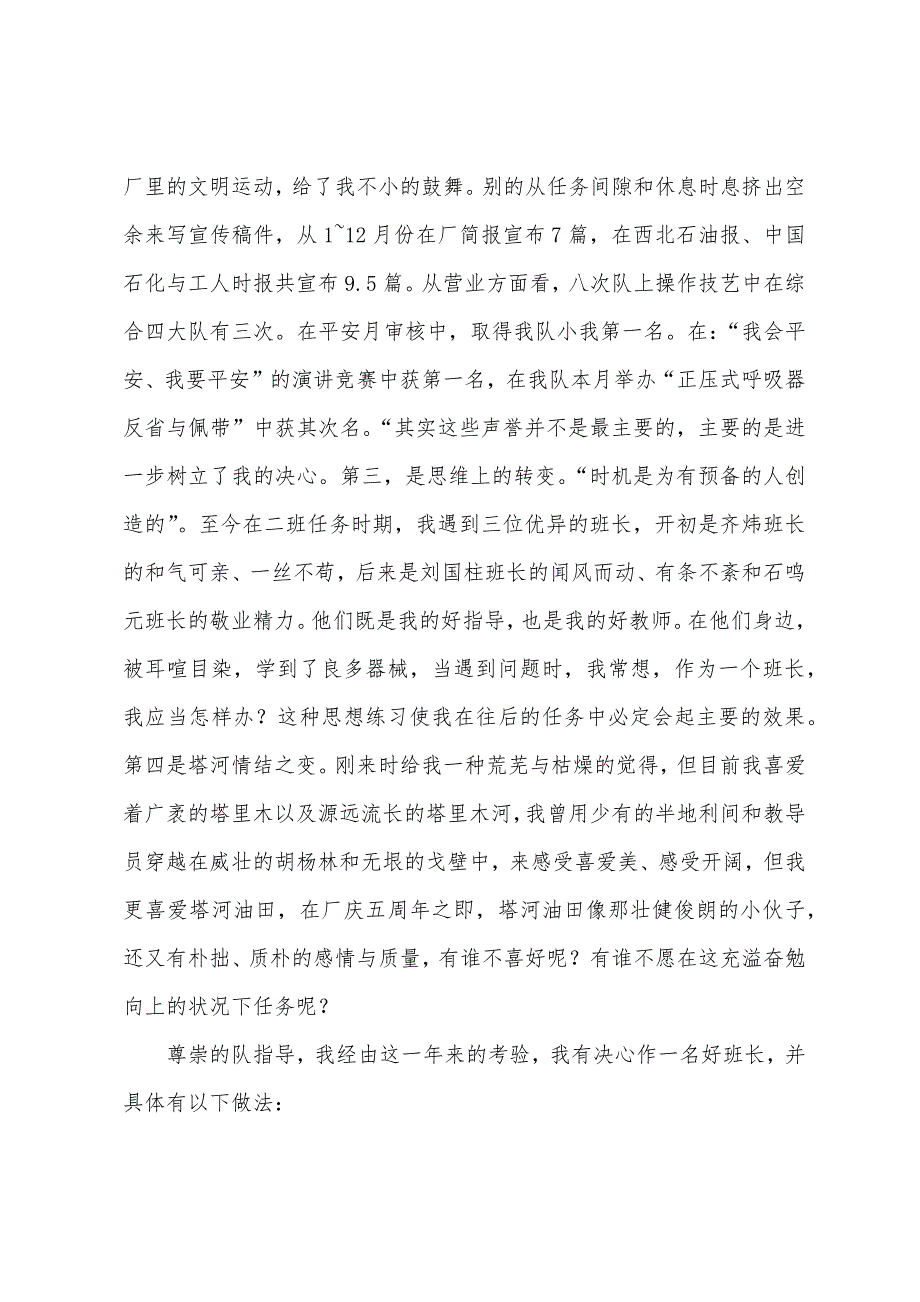 厂里的文明运动，给了我不小的鼓舞。别的从任务间隙和休息时息挤出空
余来写宣传稿件，从1~12月份在厂简报宣布7篇，在西北石油报、中国
石化与工人时报共宣布9.5篇。从营业方面看，八次队上操作技艺中在综
合四大队有三次。在平安月审核中，取得我队小我第一名。在：“我会平
安、我要平安”的演讲竞赛中获第一名，在我队本月举办“正压式呼吸器
反省与佩带”中获其次名。“其实这些声誉并不是最主要的，主要的是进
一步树立了我的决心。第三，是思维上的转变。“时机是为有预备的人创
造的”。至今在二班任务时期，我遇到三位优异的班长，开初是齐炜班长
的和气可亲、一丝不苟，后来是刘国柱班长的闻风而动、有条不紊和石鸣
元班长的敬业精力。他们既是我的好指导，也是我的好教师。在他们身边，
被耳喧目染，学到了良多器械，当遇到问题时，我常想，作为一个班长，
我应当怎样办？这种思想练习使我在往后的任务中必定会起主要的效果。
第四是塔河情结之变。刚来时给我一种荒芜与枯燥的觉得，但目前我喜爱
着广袤的塔里木以及源远流长的塔里木河，我曾用少有的半地利间和教导
员穿越在威壮的胡杨林和无垠的戈壁中，来感受喜爱美、感受开阔，但我
更喜爱塔河油田，在厂庆五周年之即，塔河油田像那壮健俊朗的小伙子，
还又有朴拙、质朴的感情与质量，有谁不喜好呢？有谁不愿在这充溢奋勉
向上的状况下任务呢？
尊崇的队指导，我经由这一年来的考验，我有决心作一名好班长，并
具体有以下做法：